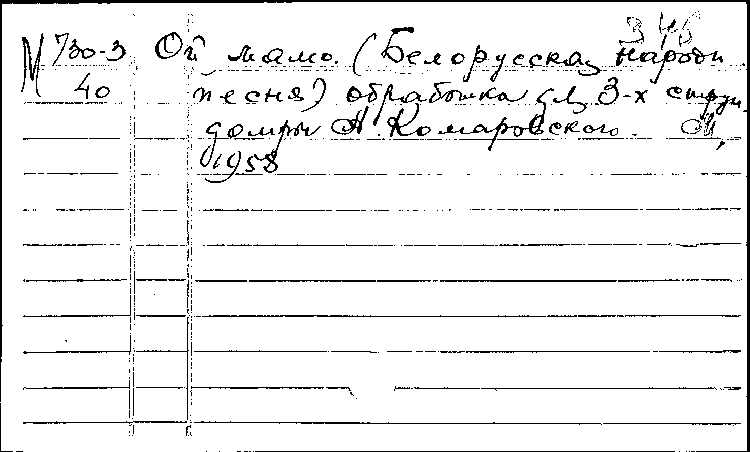 345
М 730-3 Ой мамо. (Белорусская народн.
40 песня) обработка для 3-х струн
домры А. Комаровского. М,
1958